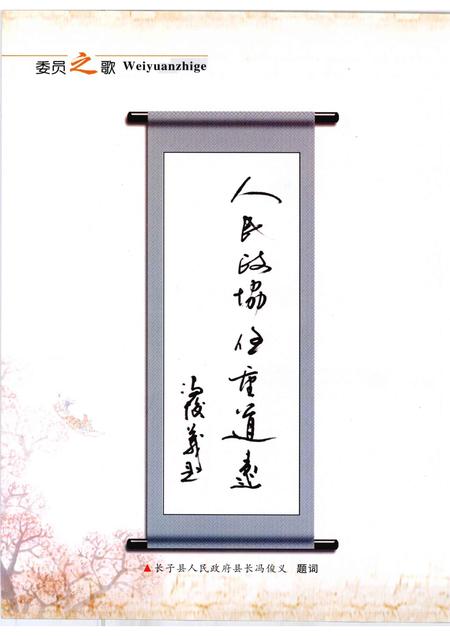 委员之歌 Weiyuanzhige
人民政協任重道遠
馮俊義題
▲长子县人民政府县长冯俊义 题词